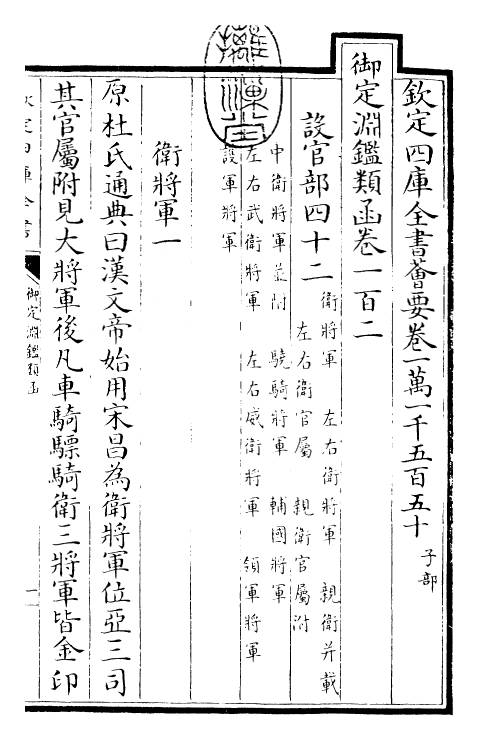 欽定四庫全書薈要卷一萬一千五百五十 子部
御定淵鑑類函卷一百二
設官部四十二
衛將軍 左右衛將軍 親衛并載
左右衛官屬 親衛官屬附
中衛將軍並附 驍騎將軍 輔國將軍
左右武衛將軍 左右威衛將軍 領軍將軍
軍將軍
衛將軍一
原杜氏通典曰漢文帝始用宋昌為衛將軍位亞三司
其官屬附見大將軍後凡車騎驃騎衛三將軍皆金印
欽定四庫全書
御定淵鑑類函
一